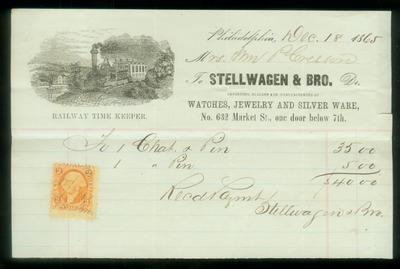 Philadelphia, Dec. 18 1865
Mrs. Wm P Cresson
To STELLWAGEN & BRO. Dr.
IMPORTERS, DEALERS AND MANUFACTURERS OF
WATCHES, JEWELRY AND SILVER WARE,
No. 632 Market St., one door below 7th.
RAILWAY TIME KEEPER.
To 1 Chat. & Pin 35 00
1 " Pin 5 00
$40 00
Recd Paymt
Stellwagen & Bro.